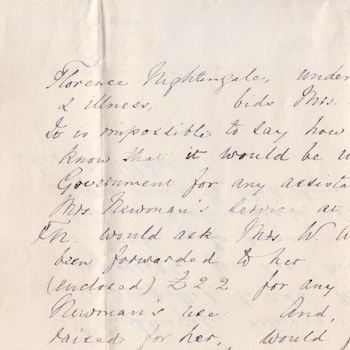 Florence Nightingale, under
& illness, bids Mrs.
It is impossible to say how
know that it would be u
Government for any assista
Mrs Newman's service at
FN. would ask Mrs W. W
been forwarded to her
(enclosed) £22 for any
Newman's use: And,
raised for her, would f